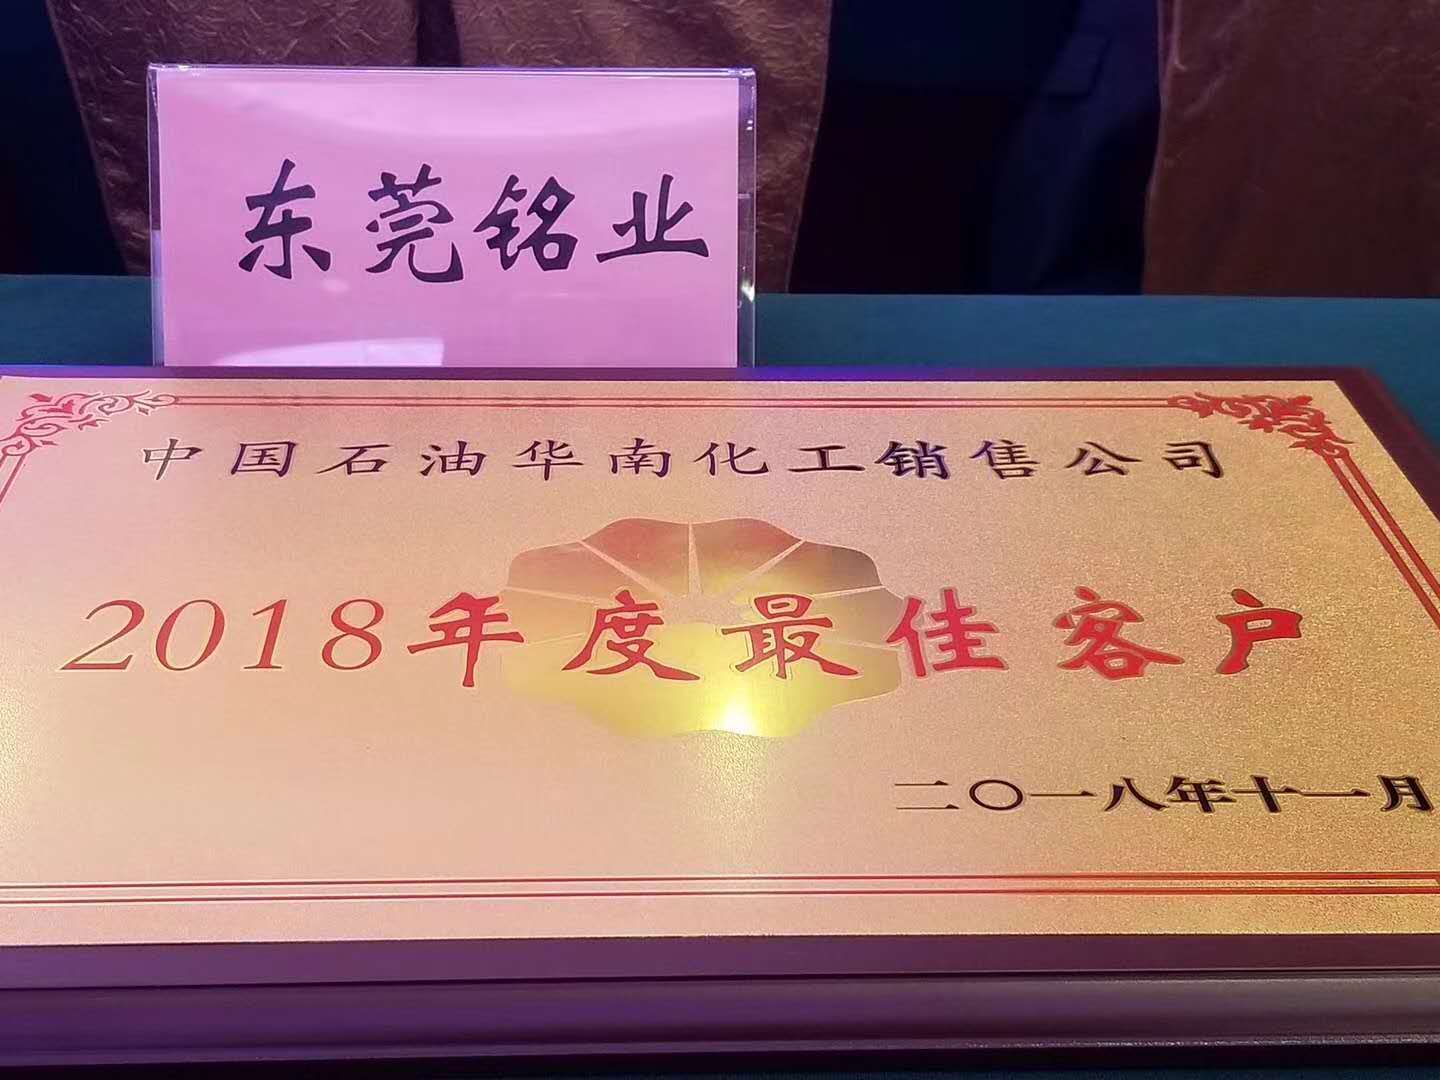 东莞铭业
中国石油华南化工销售公司
2018年度最佳客户
二〇一八年十一月